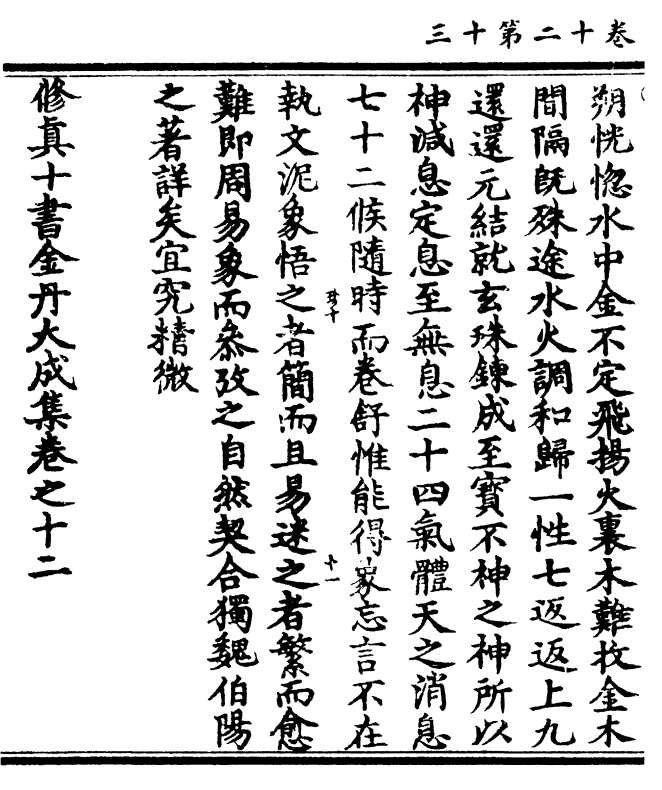 卷十二第十三
朔恍惚水中金不定飛揚火裏木難收金木
間隔旣殊途水火調和歸一性七返返上九
還還元結就玄珠鍊成至寶不神之神所以
神減息定息至無息二十四氣體天之消息
七十二候隨時而卷舒惟能得象忘言不在
執文泥象悟之者簡而且易迷之者繁而愈
難即周易象而叅攷之自然契合獨魏伯陽
之著詳矣宜究精微
修眞十書金丹大成集卷之十二
十一